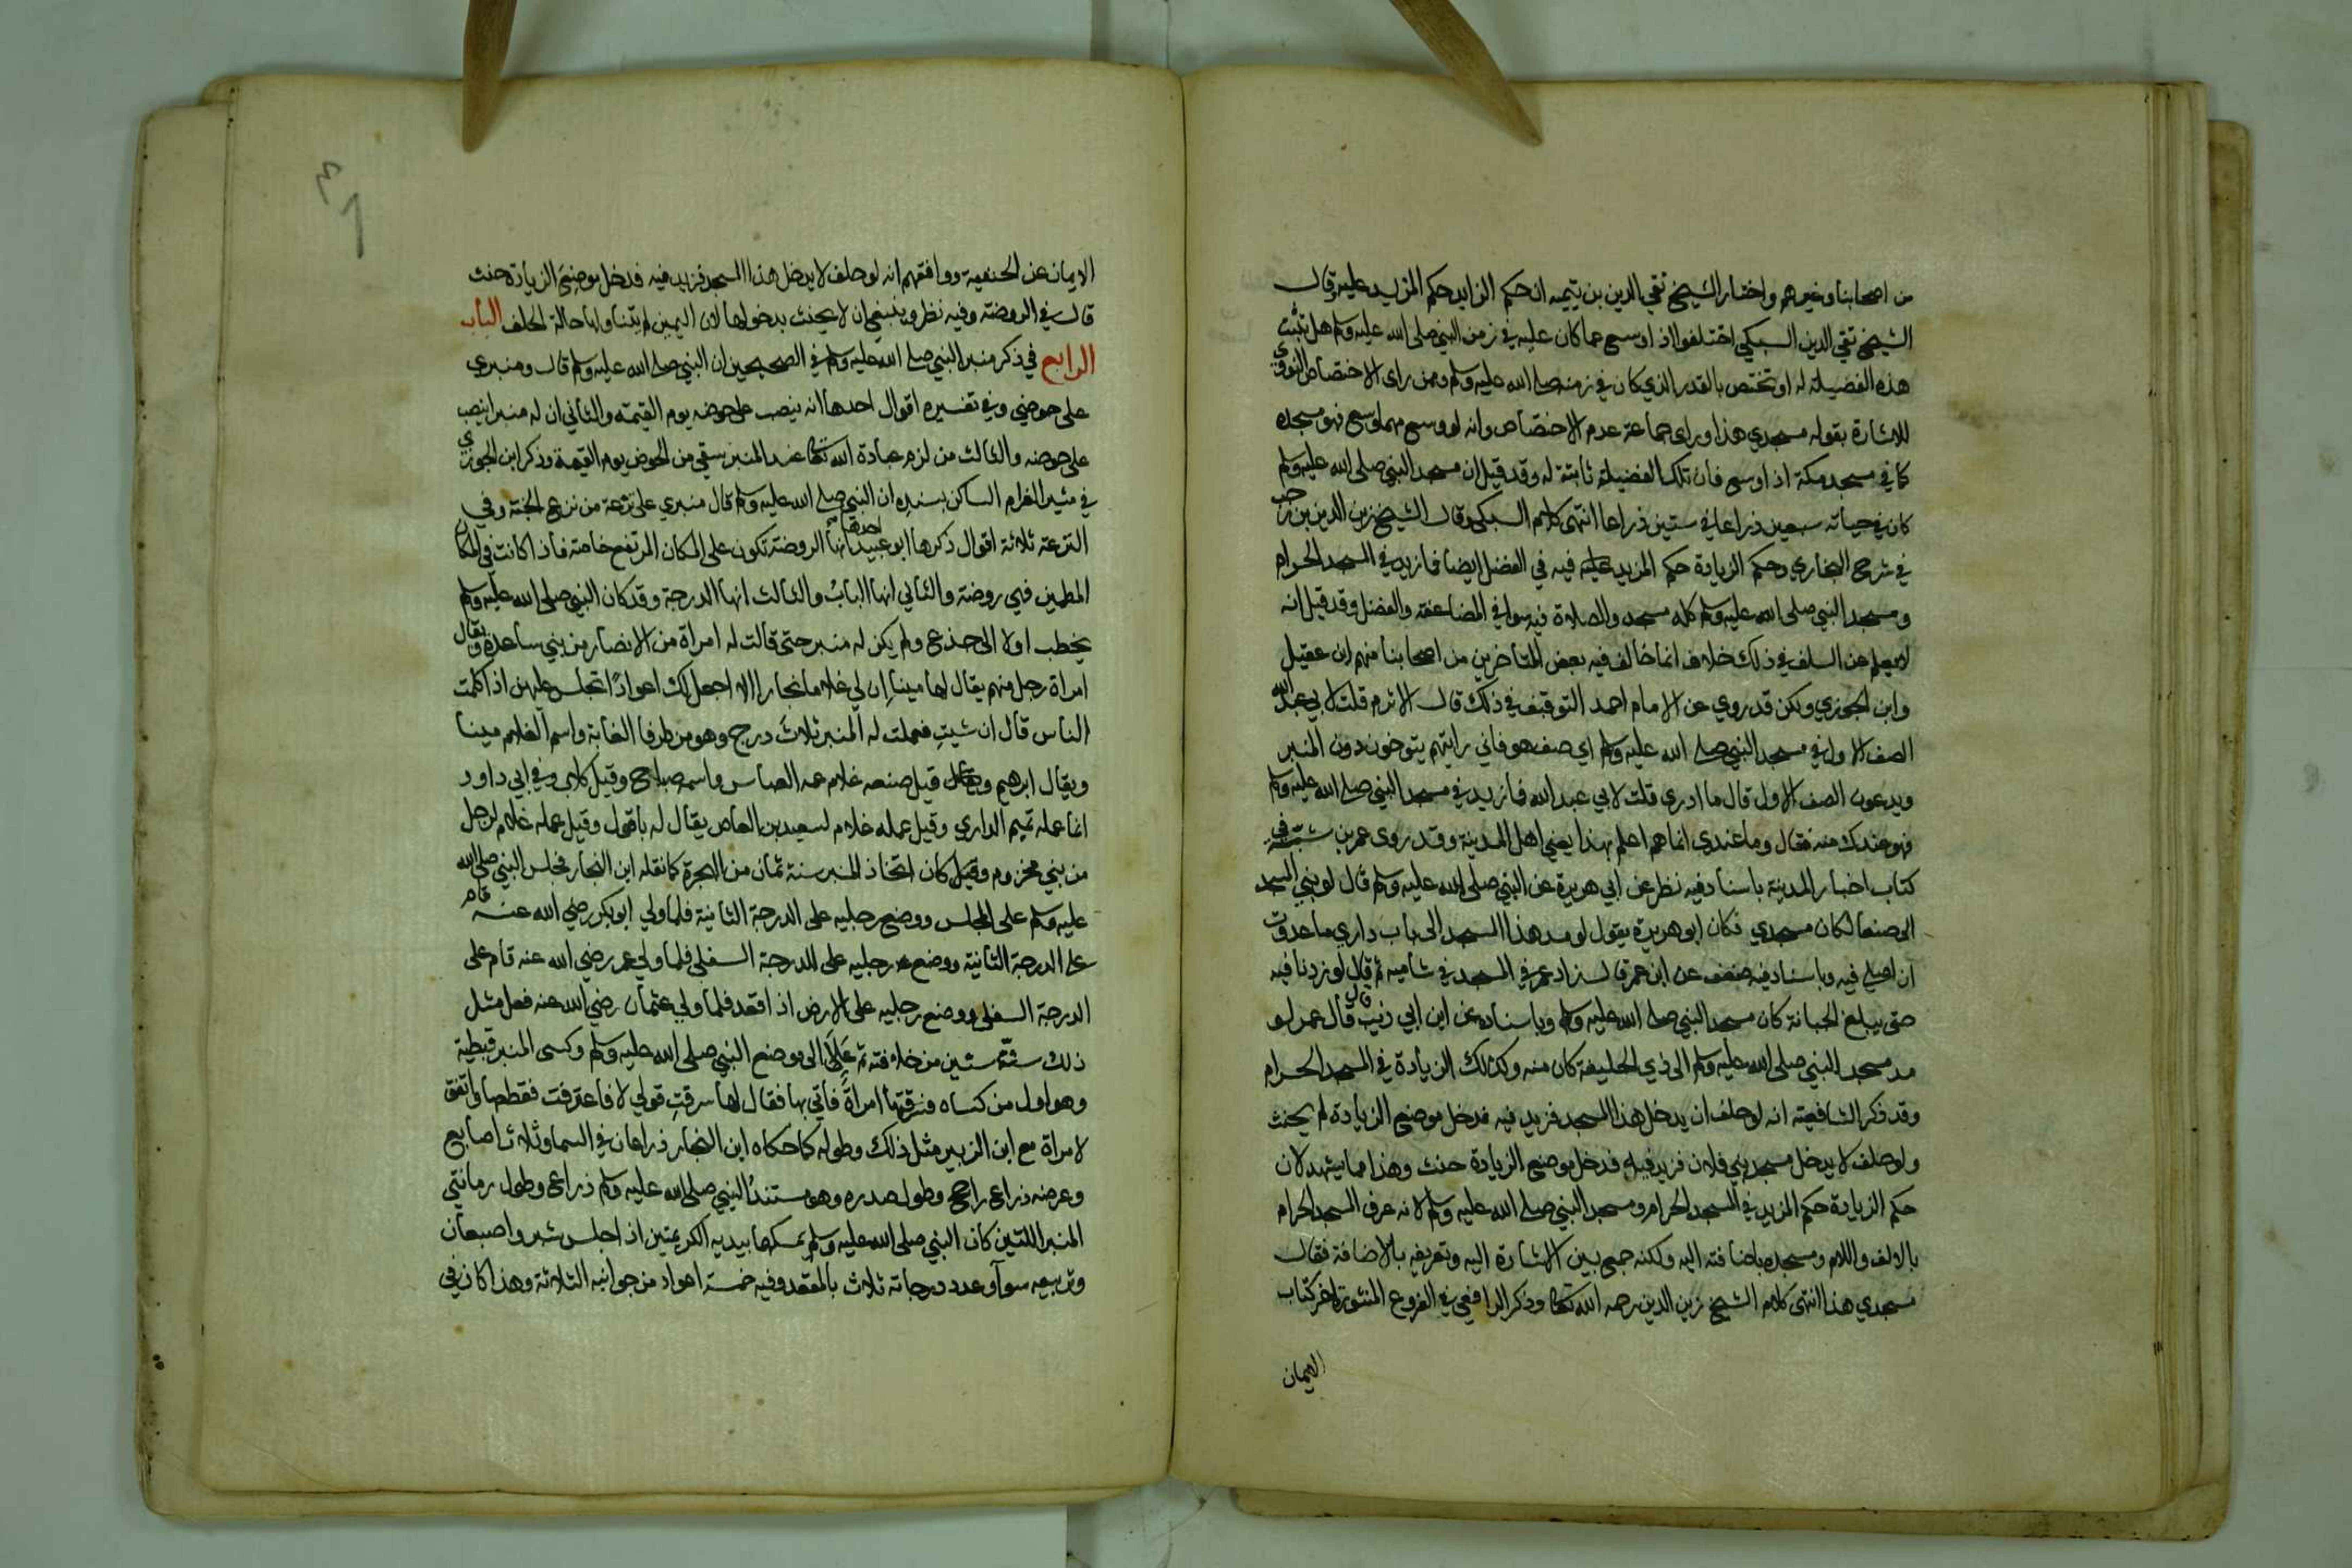 من اصحابنا وغيرهم واختار الشيخ تقي الدين بن تيميه ان حكم الزايد حكم المزيد عليه وقال
الشيخ تقي الدين السبكي اختلفوا اذا وسع عما كان عليه في زمن النبي صلى الله عليه وسلم هل تثبت
هذه الفضيلة له او تختص بالقدر الذي كان في زمنه صلى الله عليه وسلم وممن راى الاختصاص النووي
للاشارة بقوله مسجدي هذا وراى جماعة عدم الاختصاص وانه لو وسع مهما وسع فهو مسجده
كما في مسجد مكة اذا وسع فان تلك الفضيلة ثابتة له وقد قيل ان مسجد النبي صلى الله عليه وسلم
كان في حياته سبعين ذراعا في ستين ذراعا انتهى كلام السبكي وقال الشيخ زين الدين بن رجب
في شرح البخاري وحكم الزيادة حكم المزيد عليه فيه في الفضل ايضا فما زيد في المسجد الحرام
ومسجد النبي صلى الله عليه وسلم كله مسجد والصلاة فيه سوا في المضاعفة والفضل وقد قيل انه
لا يعلم عن السلف في ذلك خلاف انما خالف فيه بعض المتاخرين من اصحابنا منهم ابن عقيل
وابن الجوزي ولكن قد روي عن الامام احمد التوقيف في ذلك قال الاثرم قلت لابي عبد الله
الصف الاول في مسجد النبي صلى الله عليه وسلم اي صف هو فاني رايتهم يتوخون دون المنبر
ويدعون الصف الاول قال ما ادري قلت لابي عبد الله فما زيد في مسجد النبي صلى الله عليه وسلم
فهو عندك منه فقال وما عندي انما هم اعلم بهذا يعني اهل المدينة وقد روى عمر بن شبة في
كتاب اخبار المدينة باسناد فيه نظر عن ابي هريرة عن النبي صلى الله عليه وسلم قال لو بني المسجد
الى صنعا لكان مسجدي فكان ابو هريرة يقول لو مد هذا المسجد الى باب داري ما عدوت
ان اصلي فيه وباسناد فيه ضعف عن ابن عمر قال زاد عمر في المسجد في شاميه ثم قال لو زدنا فيه
حتى يبلغ الجبانة كان مسجد النبي صلى الله عليه وسلم وباسناده عن ابن ابي ذيب قال قال عمر لو
مد مسجد النبي صلى الله عليه وسلم الى ذي الحليفة كان منه وكذلك الزيادة في المسجد الحرام
وقد ذكر الشافعية انه لو حلف ان يدخل هذا المسجد فزيد فيه فدخل موضع الزيادة لم يحنث
ولو حلف لا يدخل مسجد بني فلان فزيد فيه فدخل موضع الزيادة حنث وهذا مما يشهد لان
حكم الزيادة حكم المزيد في المسجد الحرام ومسجد النبي صلى الله عليه وسلم لانه عرف المسجد الحرام
بالالف واللام ومسجده باضافته اليه ولكنه جمع بين الاشارة اليه وتعريفه بالاضافة فقال
مسجدي هذا انتهى كلام الشيخ زين الدين رحمه الله تعالى وذكر الرافعي في الفروع المنثورة اخر كتاب
الايمان
٣٩
الايمان عن الحنفية ووافقهم انه لو حلف لا يدخل هذا المسجد فزيد فيه فدخل موضع الزيادة حنث
قال في الروضة وفيه نظر وينبغي ان لا يحنث بدخولها لان اليمين لم يتناولها حالة الحلف الباب
الرابع في ذكر منبر النبي صلى الله عليه وسلم في الصحيحين ان النبي صلى الله عليه وسلم قال ومنبري
على حوضي وفي تفسيره اقوال احدها انه ينصب على حوضه يوم القيمة والثاني ان له منبرا ينصب
على حوضه والثالث من لزم عبادة الله تعالى عند المنبر سقي من الحوض يوم القيمة وذكر ابن الجوزي
في مثير الغرام الساكن بسنده ان النبي صلى الله عليه وسلم قال منبري على ترعة من ترع الجنة وفي
الترعة ثلاثة اقوال ذكرها ابو عبيد احدها انها الروضة تكون على المكان المرتفع خاصة فاذا كانت في المكان
المطمين فهي روضة والثاني انها الباب والثالث انها الدرجة وقد كان النبي صلى الله عليه وسلم
يخطب اولا الى جذع ولم يكن له منبر حتى قالت له امراة من الانصار من بني ساعدة ويقال
امراة رجل منهم يقال لها مينا ان لي غلاما نجارا الا اجعل لك اعوادا تجلس عليهن اذا كلمت
الناس قال ان شيت فعملت له المنبر ثلاث درج وهو من طرفا الغابة واسم الغلام مينا
ويقال ابرهيم قيل صنعه غلام عمه العباس واسمه صباح وقيل كلاب وفي ابي داود
انما عمله تميم الداري وقيل عمله غلام لسعيد بن العاص يقال له باقول وقيل عمله غلام لرجل
من بني مخزوم وقيل كان اتخاذ المنبر سنة ثمان من الهجرة كما نقله ابن النجار فجلس النبي صلى الله
عليه وسلم على المجلس ووضع رجليه على الدرجة الثانية فلما ولي ابو بكر رضي الله عنه قام
على الدرجة الثانية ووضع رجليه على الدرجة السفلى فلما ولي عمر رضي الله عنه قام على
الدرجة السفلى ووضع رجليه على الارض اذا قعد فلما ولي عثمان رضي الله عنه فعل مثل
ذلك ستة سنين من خلافته ثم علا الى موضع النبي صلى الله عليه وسلم وكسى المنبر قبطية
وهو اول من كساه فسرقتها امراة فاتي بها فقال لها سرقت قولي لا فاعترفت فقطعها واتفق
لامراة مع ابن الزبير مثل ذلك وطوله كما حكاه ابن النجار ذراعان في السما وثلاث اصابع
وعرضه ذراع راجح وطول صدره وهو مستند النبي صلى الله عليه وسلم ذراع وطول رمانتي
المنبر اللتين كان النبي صلى الله عليه وسلم يمسكها بيديه الكريمتين اذا جلس شبر واصبعان
وتربيعه سوا وعدد درجاته ثلاث بالمقعد وفيه خمسة اعواد من جوانبه الثلاثة وهذا كان في